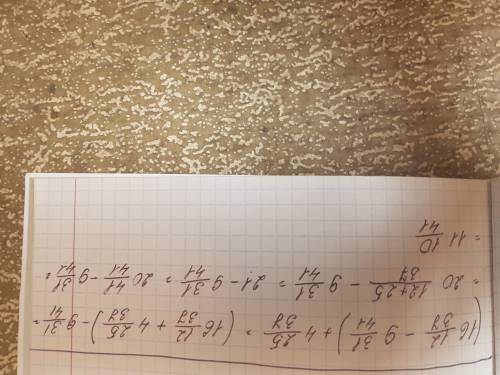 (16 12/37 − 9 31/41) + 4 25/37 = (16 12/37 + 4 25/37) − 9 31/41 =
= 20 (12+25)/37 − 9 31/41 = 21 − 9 31/41 = 20 41/41 − 9 31/41 =
= 11 10/41